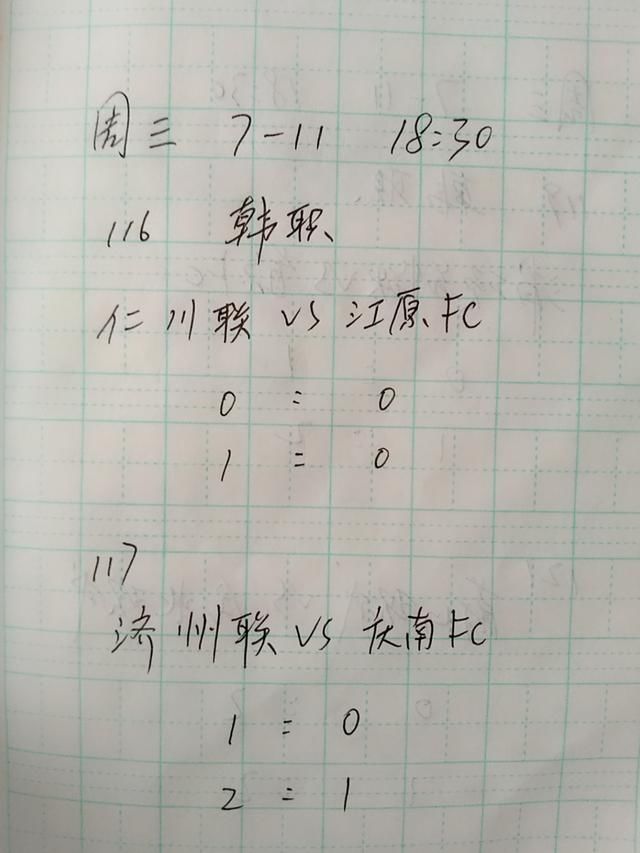 周三 7-11 18:30
116 韩职
仁川联 VS 江原FC
0 : 0
1 : 0
117
济州联 VS 庆南FC
1 : 0
2 : 1